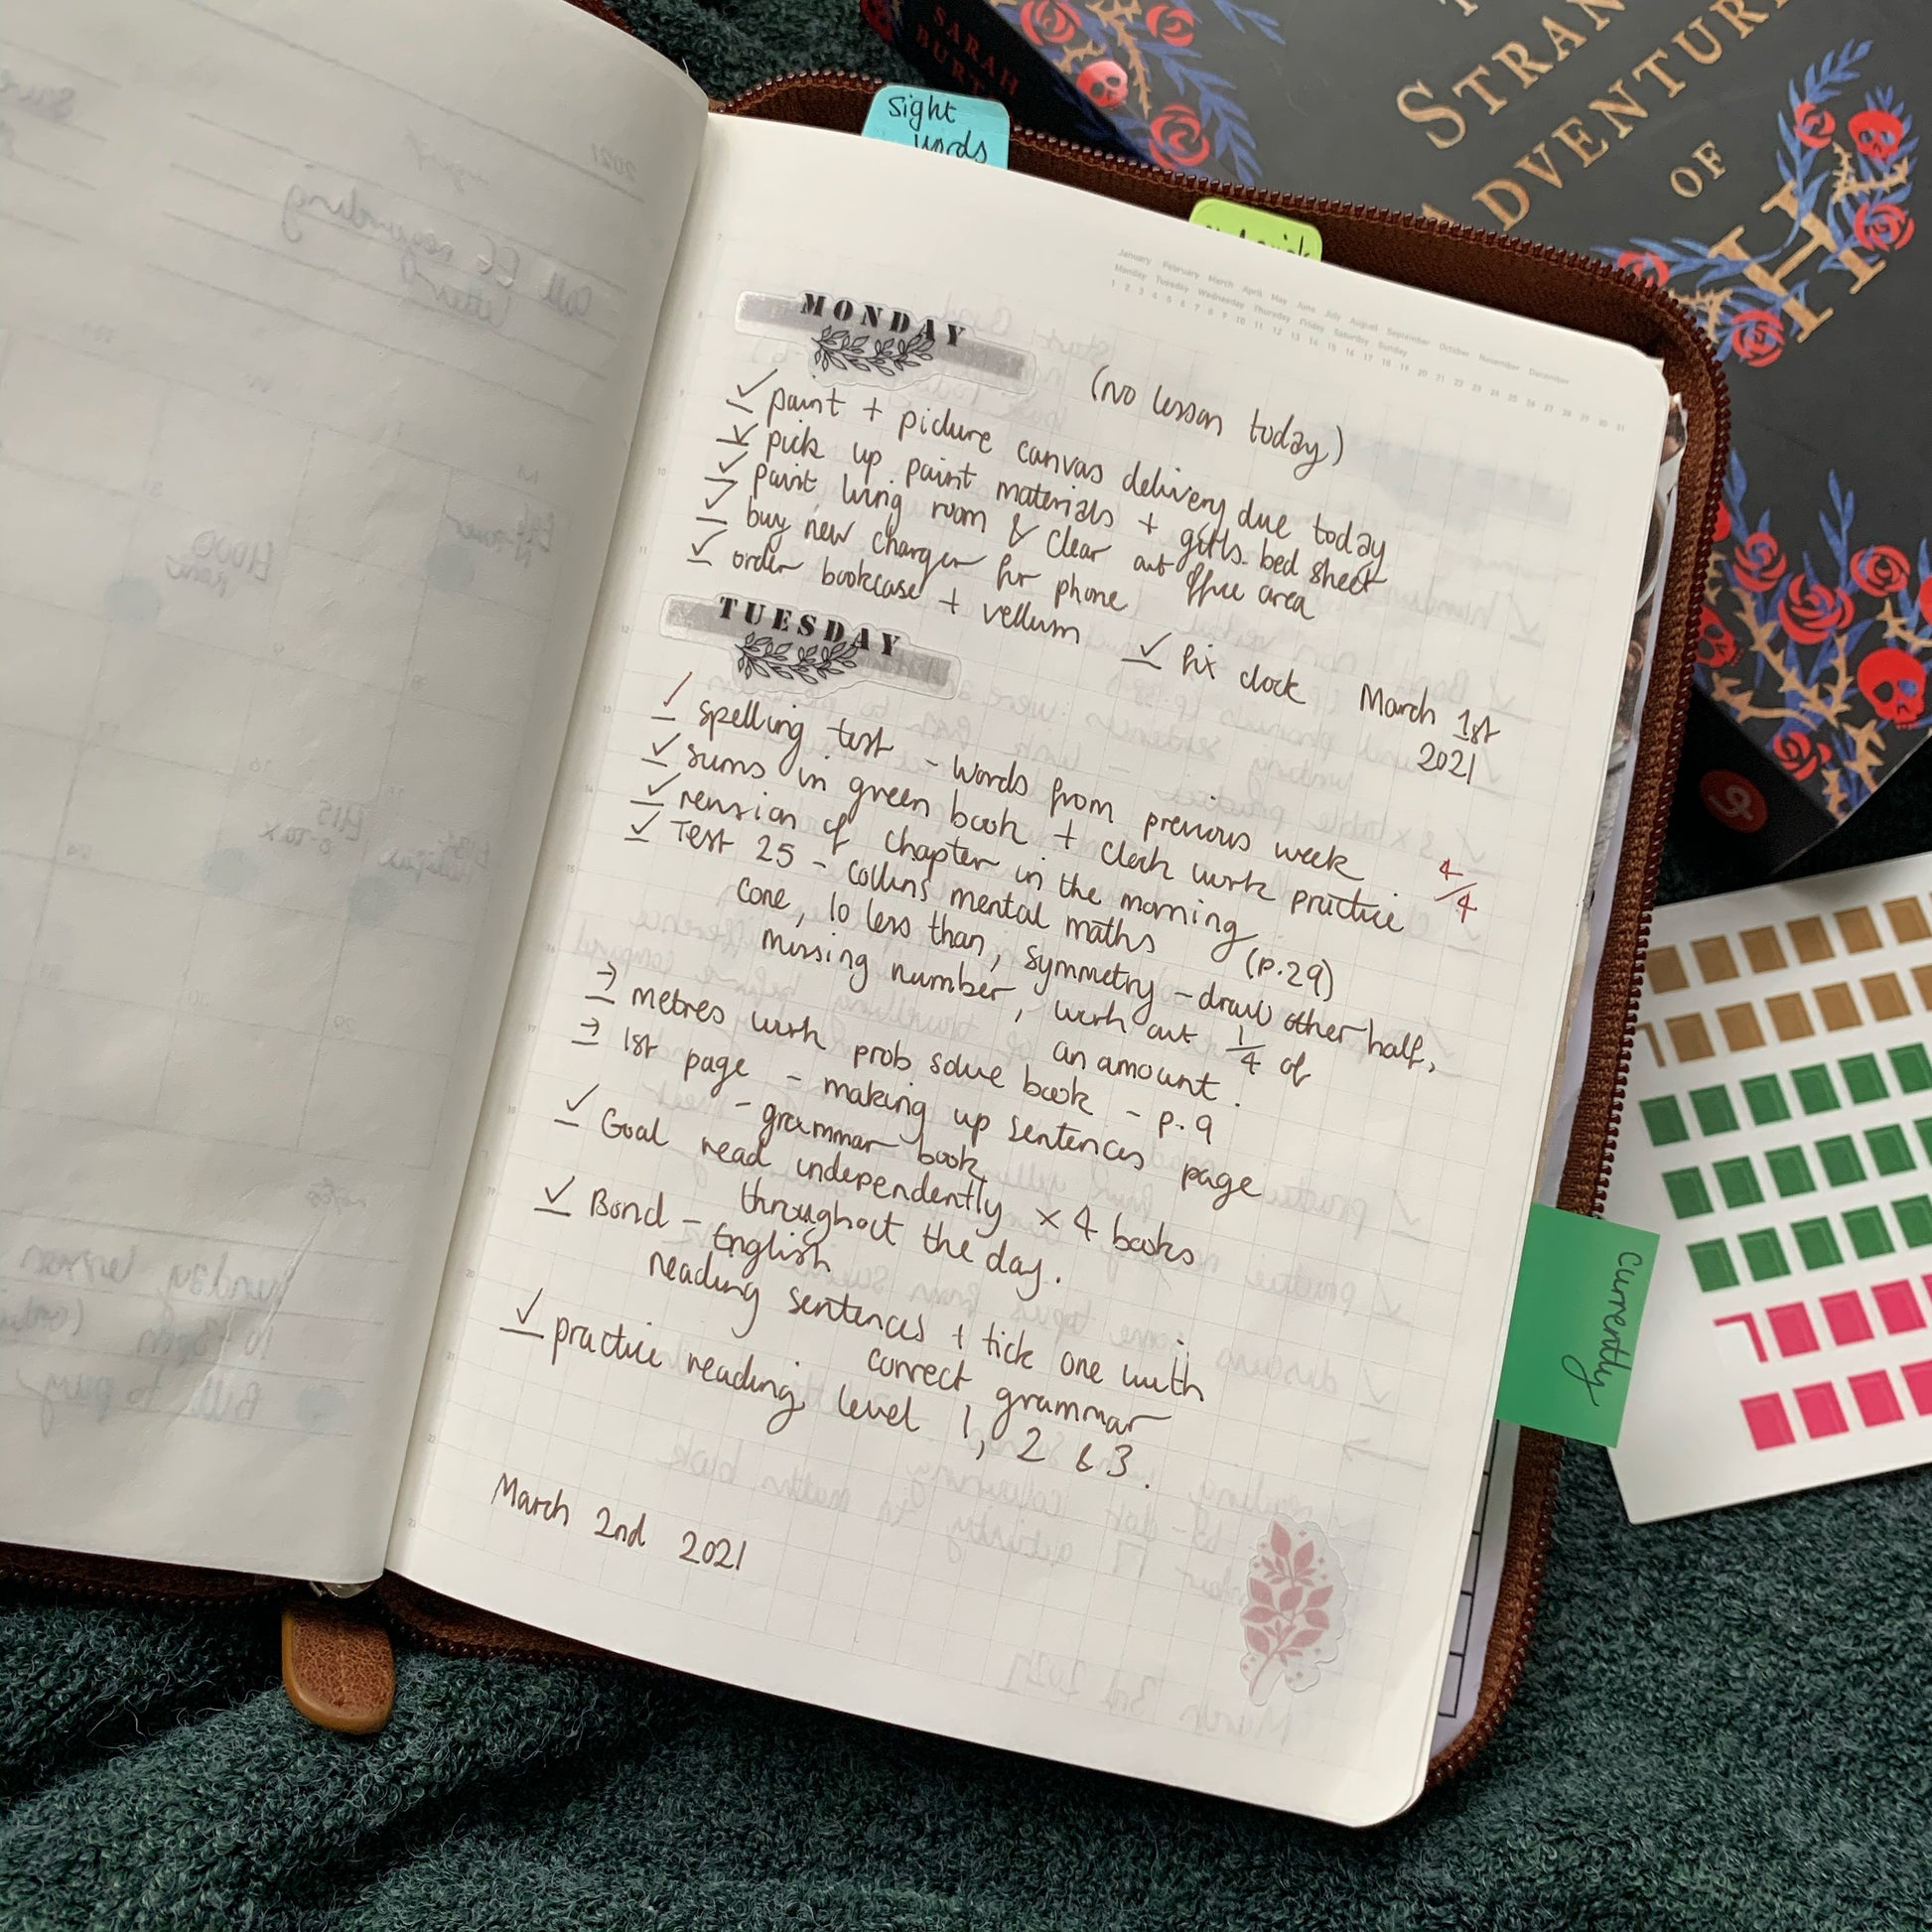 sight
words
SARAH
BURT
STRAN
ADVENTUR
OF
H
January February March April May June July August September October November December
Monday Tuesday Wednesday Thursday Friday Saturday Sunday
1 2 3 4 5 6 7 8 9 10 11 12 13 14 15 16 17 18 19 20 21 22 23 24 25 26 27 28 29 30 31
MONDAY
(no lesson today)
✓ paint + picture canvas delivery due today
✓ pick up paint materials + girls bed sheet
✓ paint living room & clear out office area
✓ buy new charger for phone
✓ order bookcase + vellum
✓ fix clock
March 1st
2021
TUESDAY
/ spelling test - words from previous week
4/4
✓ sums in green book + clock work practice
✓ revision of chapter in the morning
✓ Test 25 - Collins mental maths (p.29)
cone, 10 less than, symmetry - draw other half,
missing number, work out 1/4 of
an amount.
→ metres work prob solve book - p.9
→ 1st page - making up sentences page
- grammar book
✓ Goal read independently x 4 books
throughout the day.
✓ Bond - English
reading sentences + tick one with
correct grammar
✓ practice reading level 1, 2 & 3.
March 2nd 2021
Currently